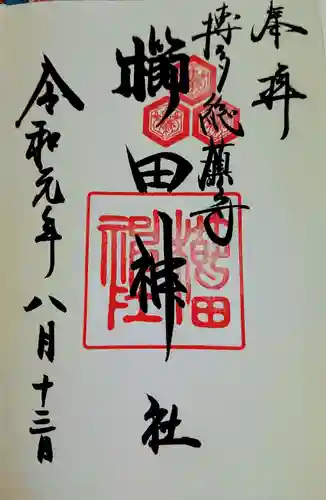 奉拝
博多総鎮守
櫛田神社
令和元年八月十三日
櫛田
神社